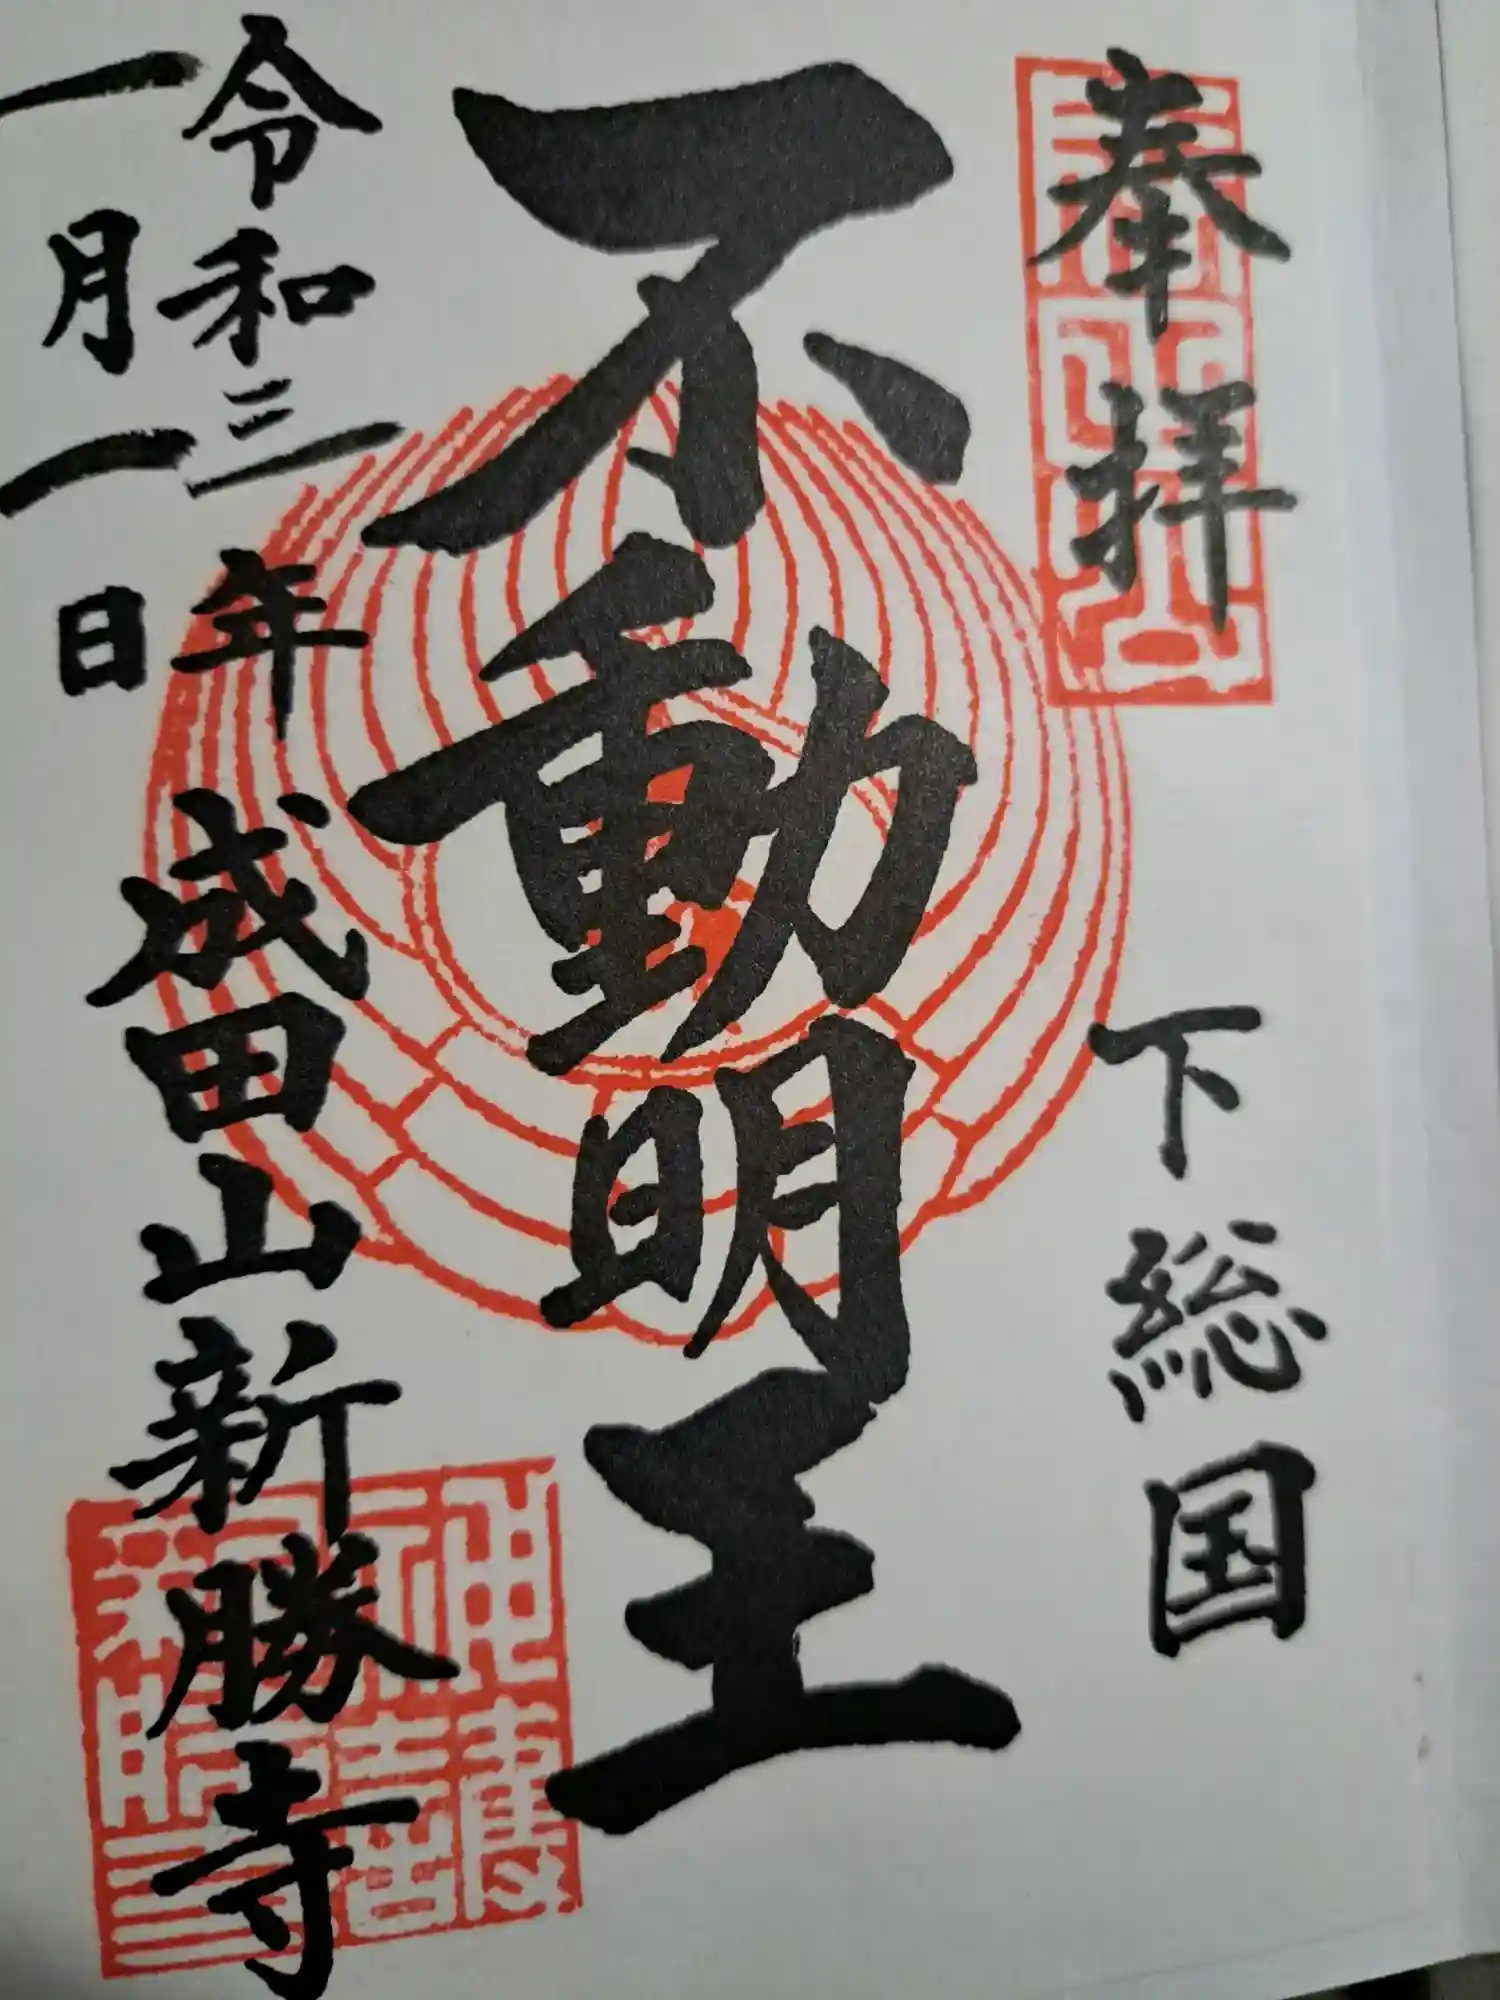 奉拝
下総国
不動明王
令和三年
成田山新勝寺
一月一日